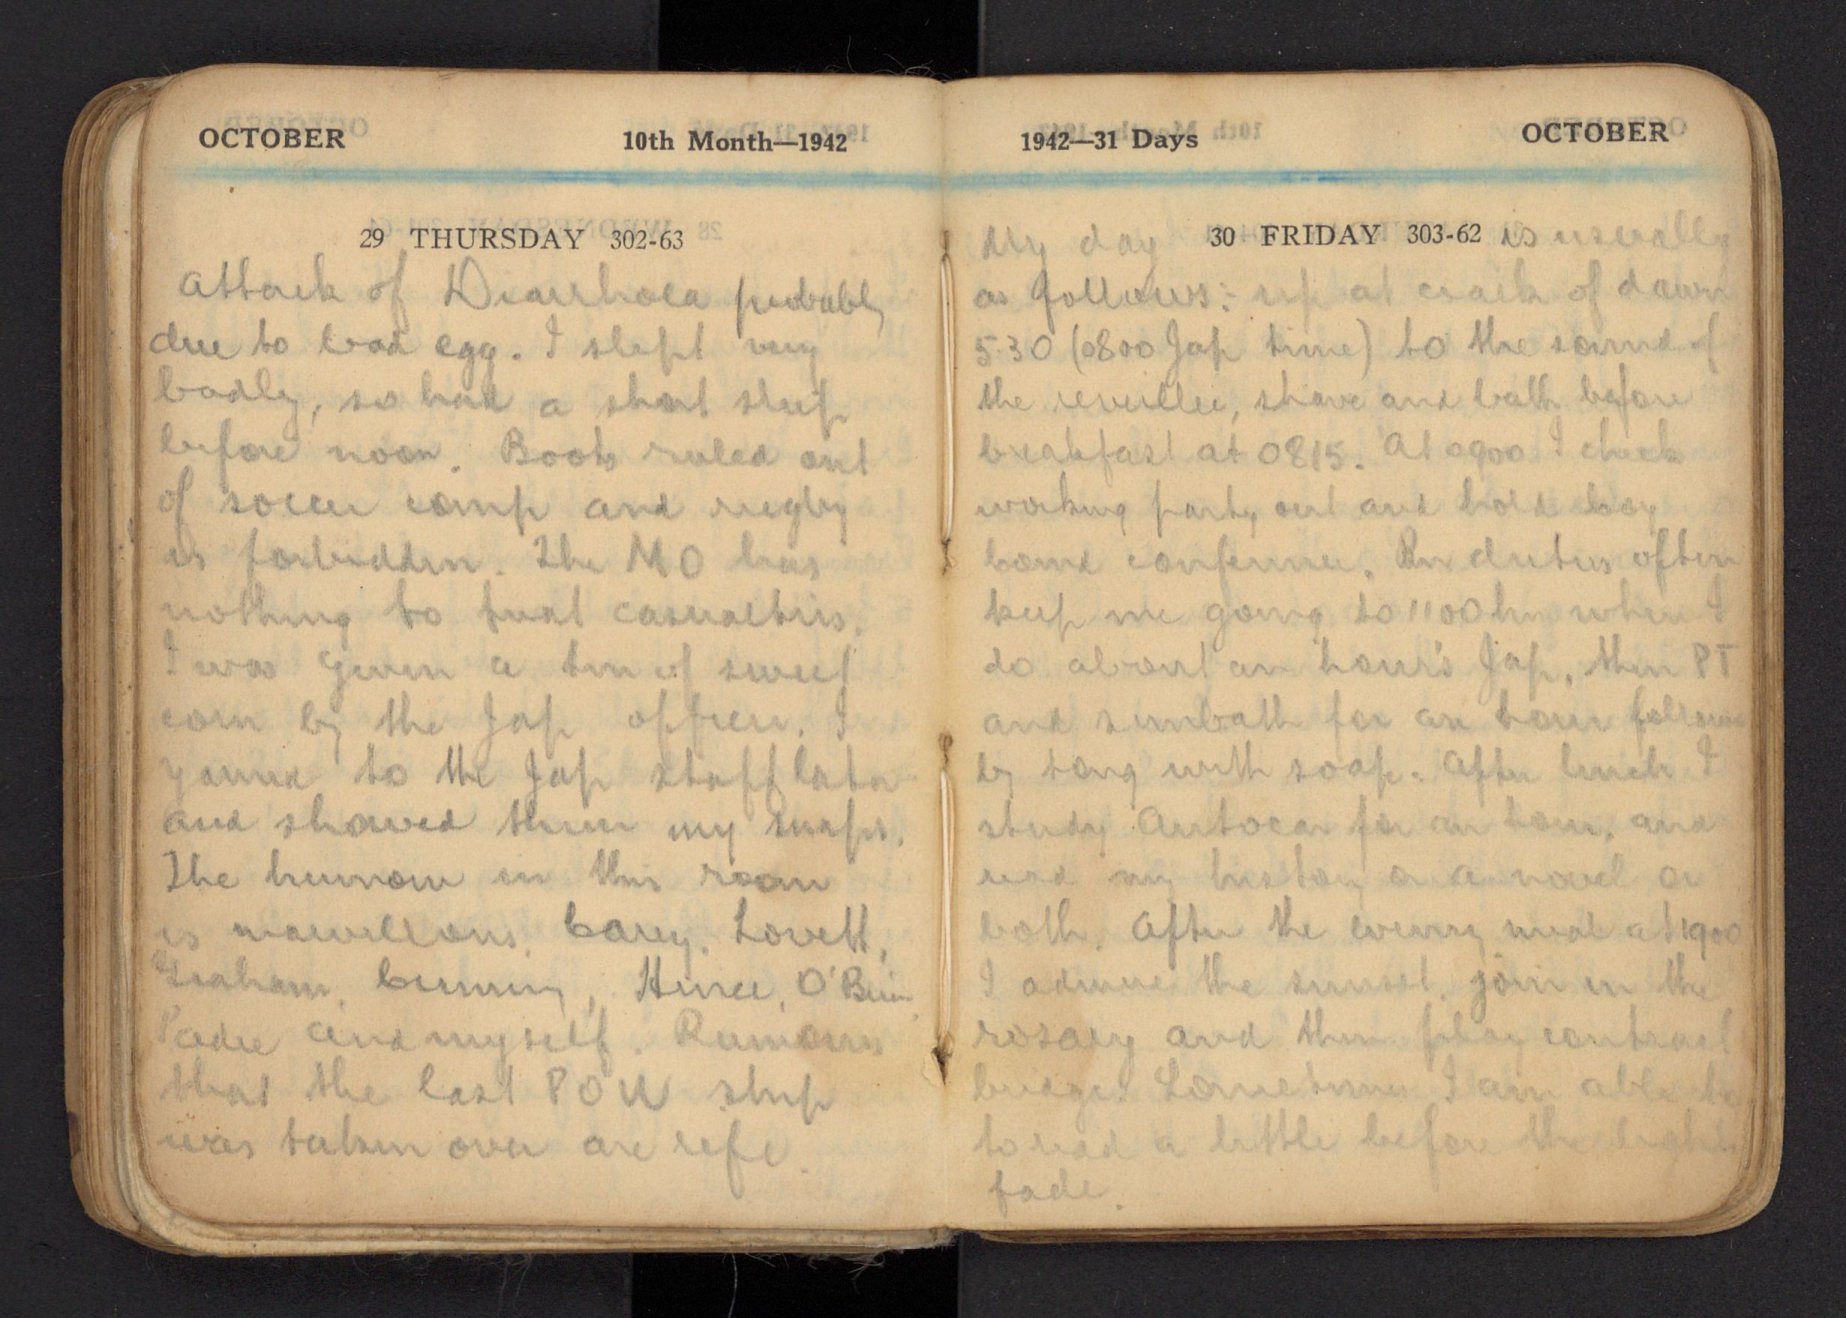 OCTOBER 10th Month—1942
29 THURSDAY 302-63
Attack of Diarrhoea probably
due to bad egg. I slept very
badly, so had a short sleep
before noon. Boots ruled out
of soccer comp and rugby
is forbidden. The MO has
nothing to treat casualties.
I was given a tin of sweet
corn by the Jap officer. I
yarned to the Jap staff later
and showed them my snaps.
The humour in this room
is marvellous. Carey, Lovett,
Graham, Cumming, Hince, O'Brien
Padre and myself. Rumours
that the last POW ship
was taken over are rife.
1942—31 Days OCTOBER
30 FRIDAY 303-62
My day is usually
as follows:- up at crack of dawn
5.30 (0800 Jap time) to the sound of
the reveille, shave and bath before
breakfast at 0815. At 0900 I check
working party out and hold
conference. Bn duties often
keep me going to 1100 hrs when I
do about an hour's Jap, then PT
and sunbath for an hour followed
by tong with soap. After lunch I
study Autocar for an hour, and
read my history or a novel or
both. After the evening meal at 1900
I admire the sunset, join in the
rosary and then play contract
bridge. Sometimes I am able to
to read a little before the lights
fade.